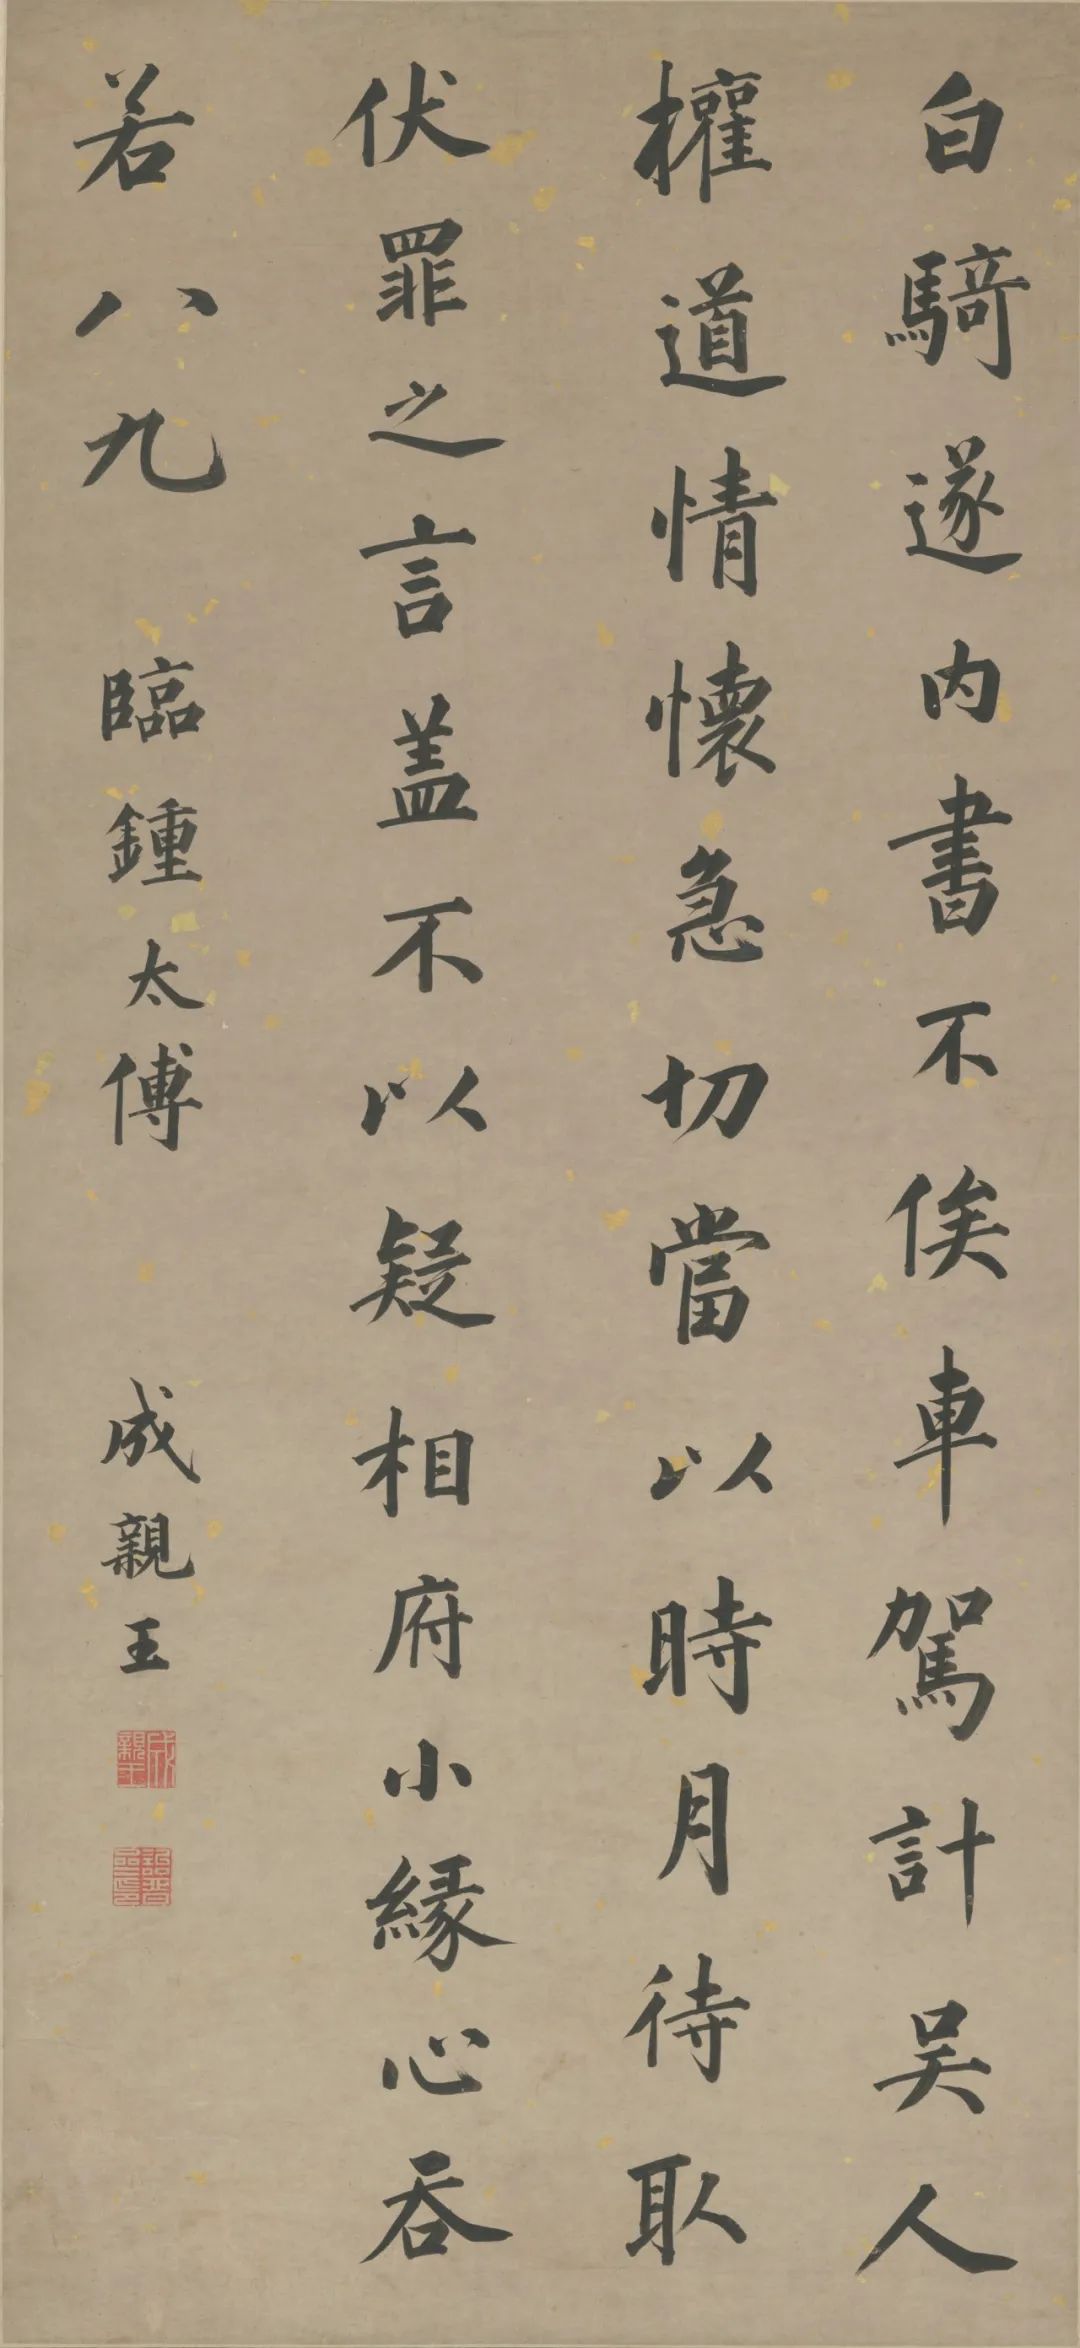 白騎遂内書不俟車駕計吴人
權道情懷急切當以時月待取
伏罪之言盖不以疑相府小緣心吞
若八九 臨鍾太傅 成親王
成親王